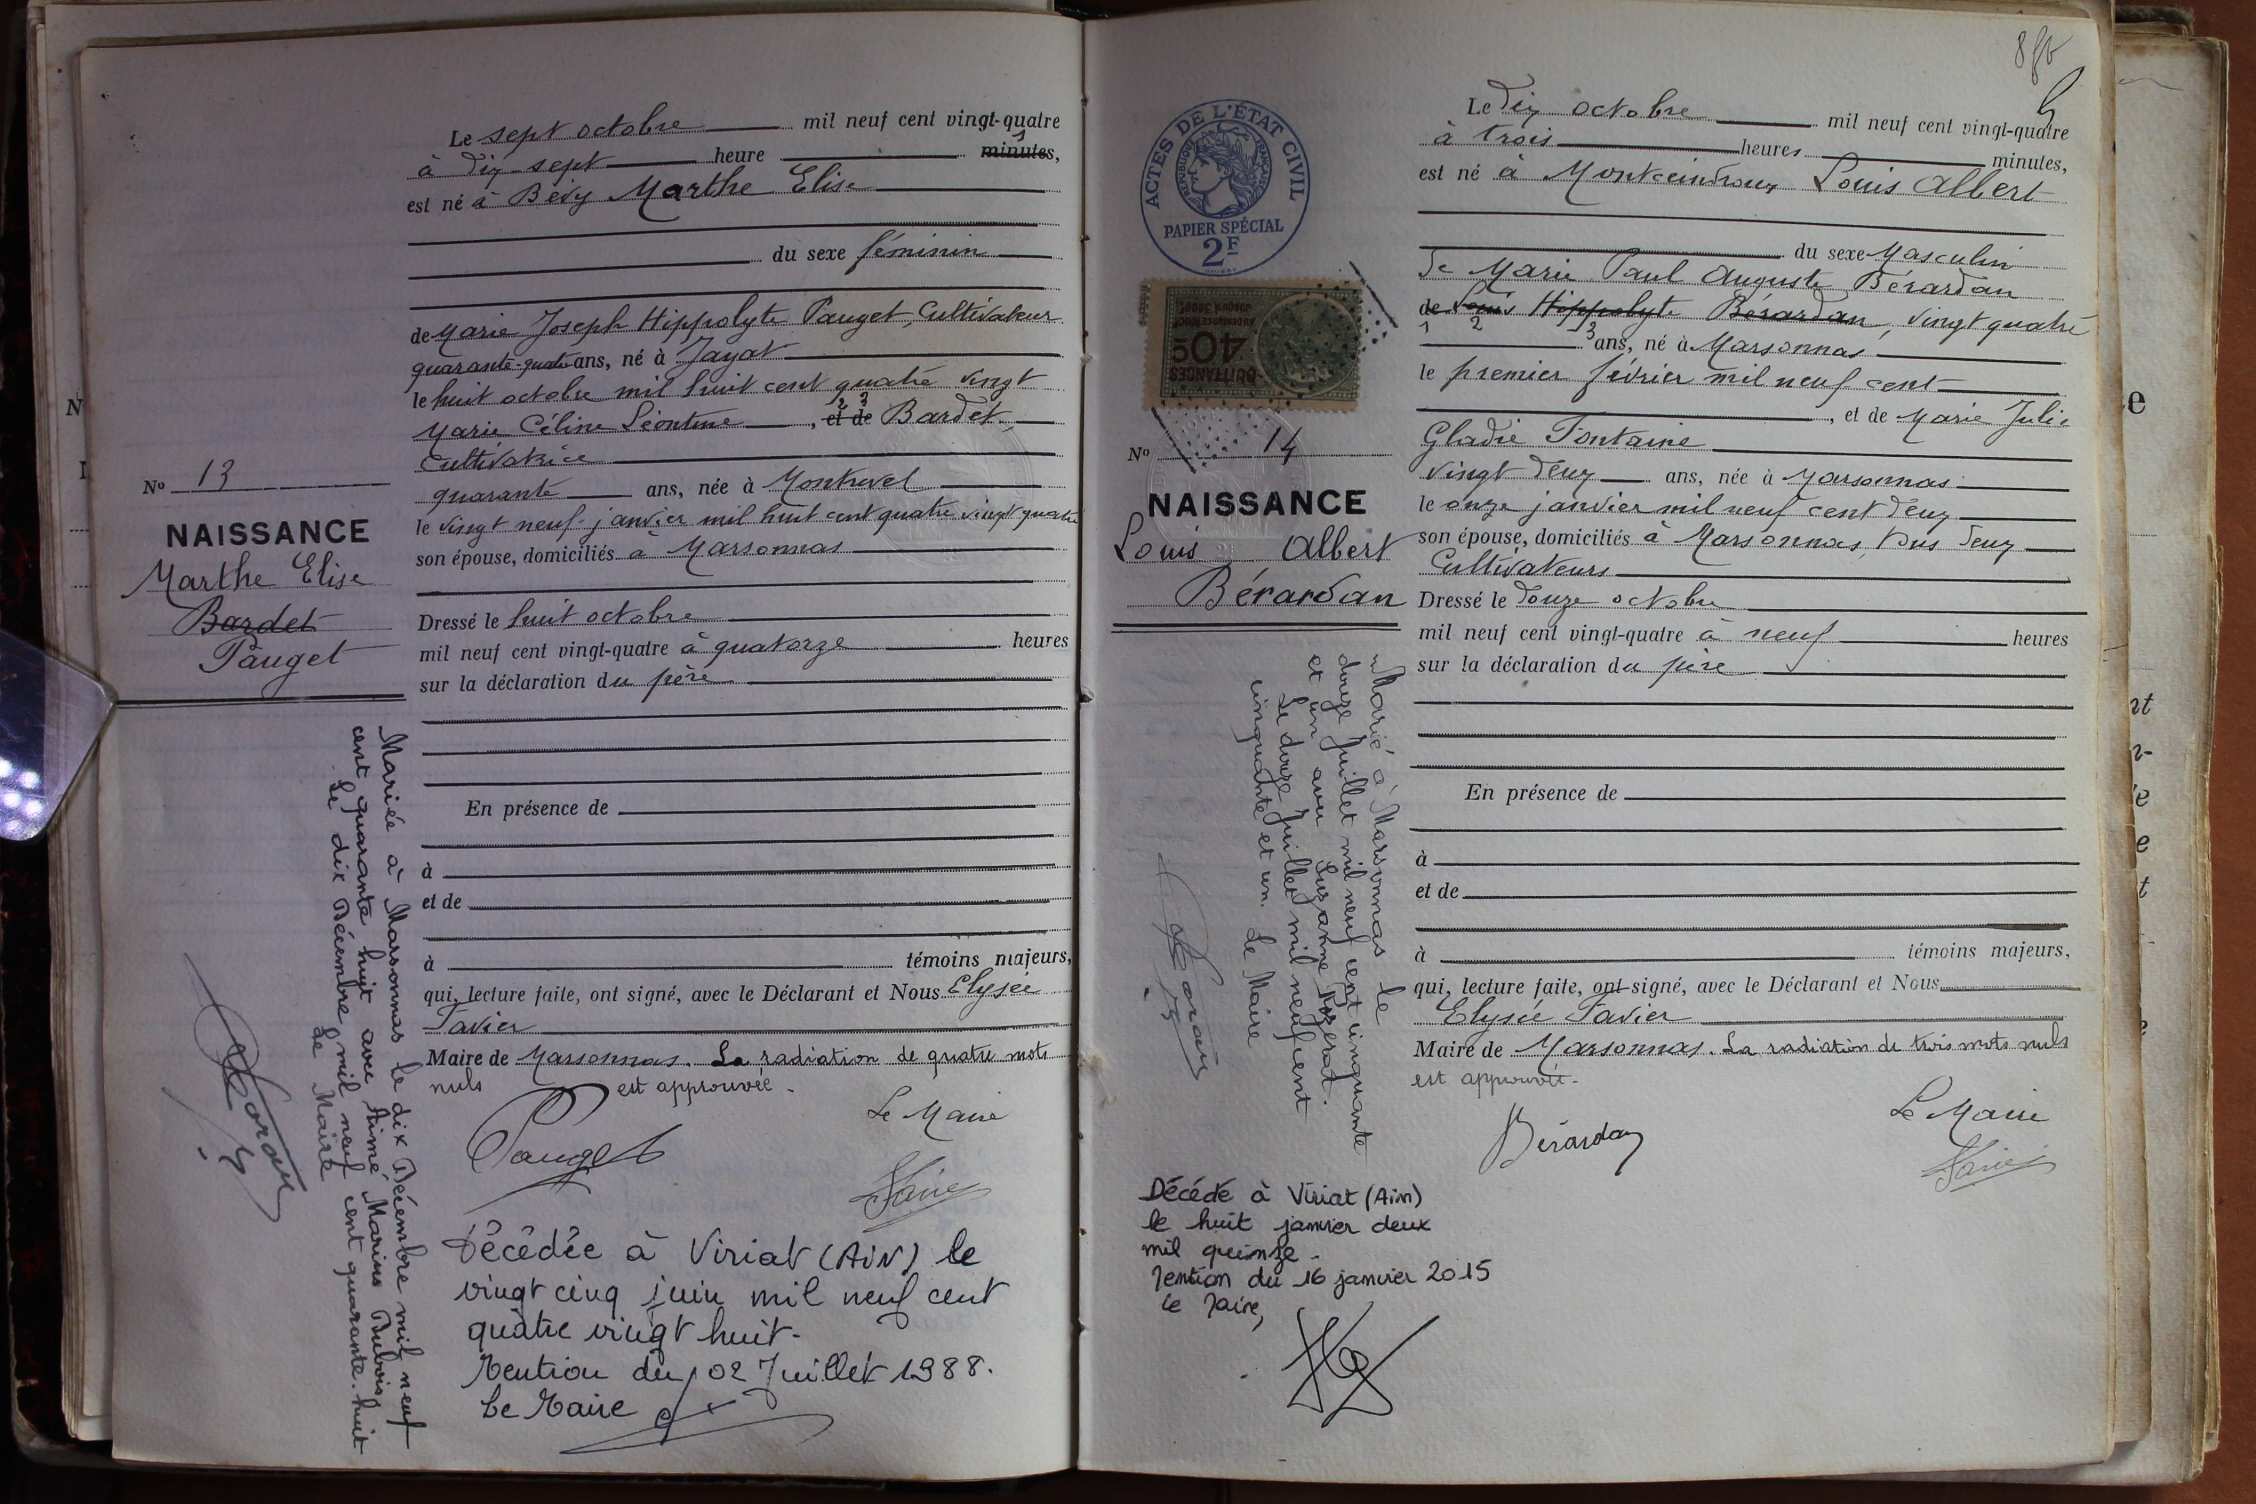 Le sept octobre mil neuf cent vingt-quatre
à dix-sept heure minutes,
est né à Bévy Marthe Elise
du sexe féminin
de Marie Joseph Hippolyte Pauget, Cultivateur
quarante-quatre ans, né à Jayat
le huit octobre mil huit cent quatre vingt
Marie Céline Léontine, et de Bardet,
Cultivatrice
quarante ans, née à Montrevel
le vingt neuf janvier mil huit cent quatre vingt quatre
son épouse, domiciliés à Marsonnas
No 13
NAISSANCE
Marthe Elise
Bardet
Pauget
Dressé le huit octobre
mil neuf cent vingt-quatre à quatorze heures
sur la déclaration du père
En présence de
à
et de
à témoins majeurs,
qui, lecture faite, ont signé, avec le Déclarant et Nous Elysée
Favier
Maire de Marsonnas. La radiation de quatre mots
nuls est approuvée.
Pauget
Le Maire
Favier
Mariée à Marsonnas le dix Décembre mil neuf
cent quarante huit avec Aimé Marius Dubois
Le dix Décembre mil neuf cent quarante-huit
Le Maire
Décédée à Viriat (AiN) le
vingt cinq juin mil neuf cent
quatre vingt huit.
Mention du 02 Juillet 1988.
Le Maire
5
Le Dix octobre mil neuf cent vingt-quatre
à trois heures minutes,
est né à Montceindroux Louis Albert
du sexe Masculin
de Marie Paul Auguste Bérardan
de Louis Hippolyte Bérardan, vingt quatre
1 2 3
ans, né à Marsonnas
le premier février mil neuf cent
, et de Marie Julie
Gladie Fontaine
vingt deux ans, née à Marsonnas
le onze janvier mil neuf cent deux
son épouse, domiciliés à Marsonnas, tous deux
Cultivateurs
ACTES DE L'ÉTAT CIVIL
RÉPUBLIQUE FRANÇAISE
PAPIER SPÉCIAL
2F
QUITTANCES
50F
No 14
NAISSANCE
Louis Albert
Bérardan
Dressé le Douze octobre
mil neuf cent vingt-quatre à neuf heures
sur la déclaration du père
En présence de
à
et de
à témoins majeurs,
qui, lecture faite, ont signé, avec le Déclarant et Nous
Elysée Favier
Maire de Marsonnas. La radiation de trois mots nuls
est approuvée.
Bérardan
Le Maire
Favier
Marié à Marsonnas le
douze Juillet mil neuf cent cinquante
et un avec Suzanne
Le douze Juillet mil neuf cent
cinquante et un. Le Maire
Décédé à Viriat (Ain)
le huit janvier deux
mil quinze.
Mention du 16 janvier 2015
Le Maire,